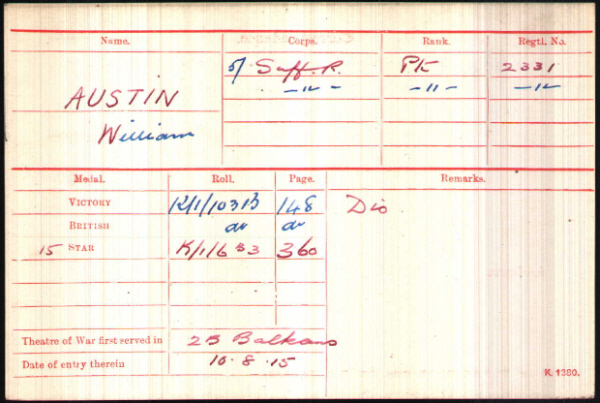 Name. Corps. Rank. Regtl. No.
5/ Suff. R. Pte 2331
AUSTIN -"- -"- -"-
William
Medal. Roll. Page. Remarks.
VICTORY K/1/103B 148 Dis
BRITISH do do
15 STAR K/1/6 B3 360
Theatre of War first served in 2B Balkans
Date of entry therein 10.8.15
K. 1380.